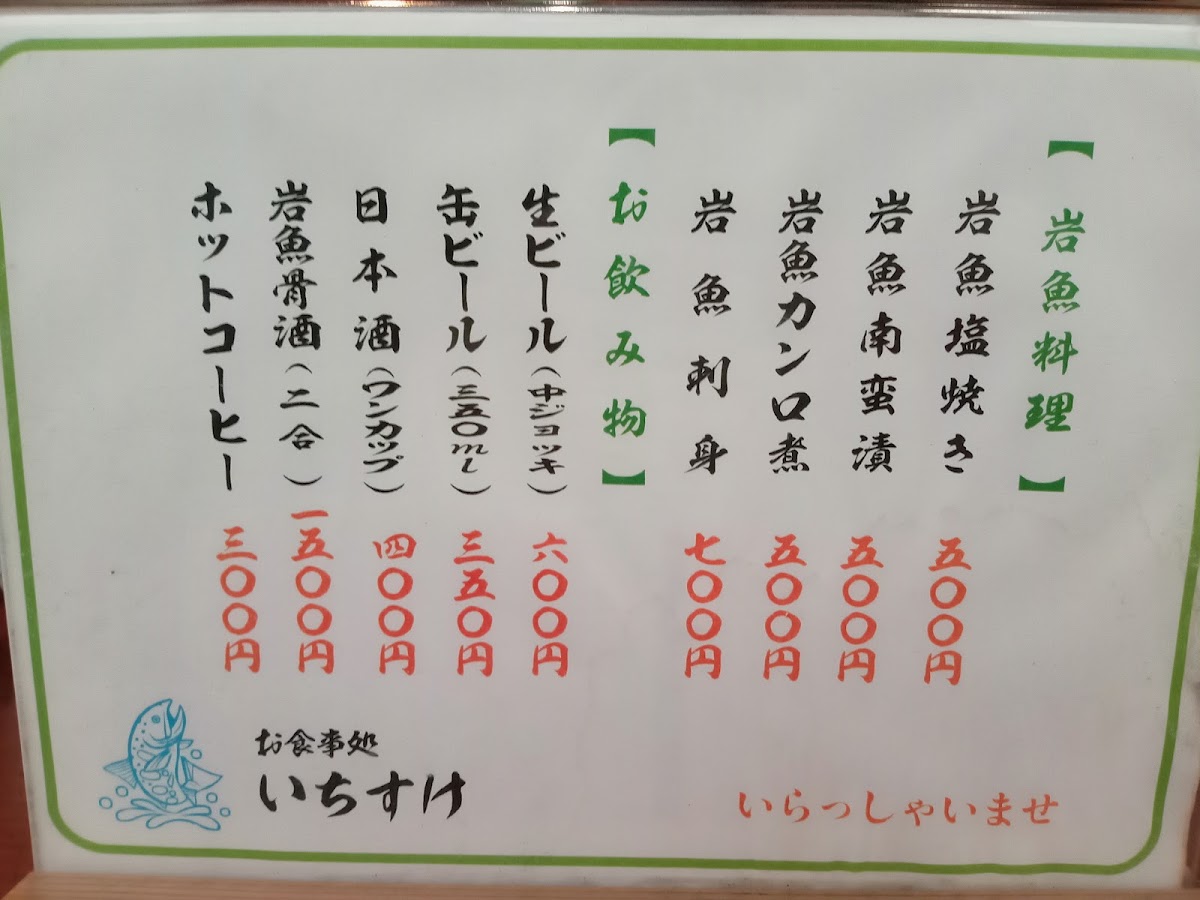 【岩魚料理】
岩魚塩焼き 五〇〇円
岩魚南蛮漬 五〇〇円
岩魚カンロ煮 五〇〇円
岩魚刺身 七〇〇円
【お飲み物】
生ビール(中ジョッキ) 六〇〇円
缶ビール(三五〇ml) 三五〇円
日本酒(ワンカップ) 四〇〇円
岩魚骨酒(二合) 一五〇〇円
ホットコーヒー 三〇〇円
お食事処
いちすけ
いらっしゃいませ